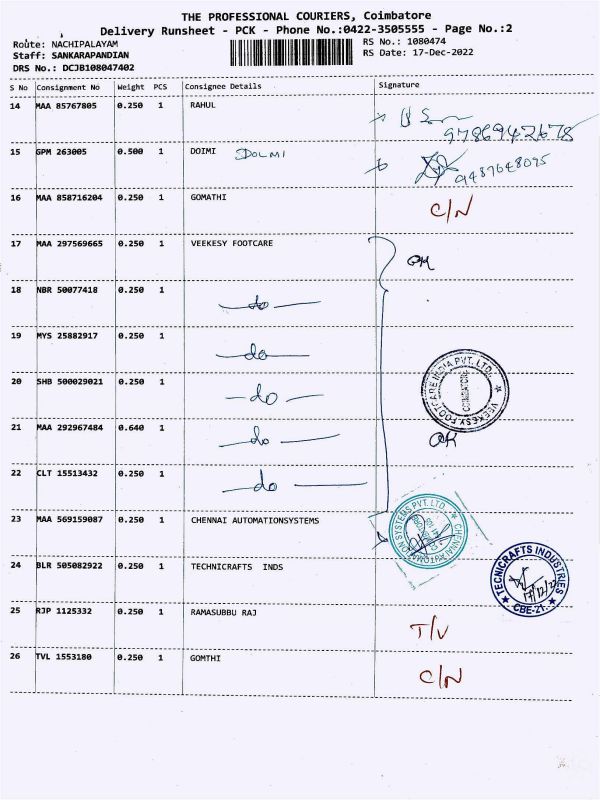 THE PROFESSIONAL COURIERS, Coimbatore
Delivery Runsheet - PCK - Phone No.:0422-3505555 - Page No.:2
Route: NACHIPALAYAM RS No.: 1080474
Staff: SANKARAPANDIAN RS Date: 17-Dec-2022
DRS No.: DCJB108047402
S No Consignment No Weight PCS Consignee Details Signature
14 MAA 85767805 0.250 1 RAHUL
9786942678
15 GPM 263005 0.500 1 DOIMI DOLMI
9487648095
16 MAA 858716204 0.250 1 GOMATHI C/N
17 MAA 297569665 0.250 1 VEEKESY FOOTCARE OK
18 NBR 50077418 0.250 1 —do—
19 MYS 25882917 0.250 1 —do—
20 SHB 500029021 0.250 1 —do—
VEEKESY FOOTCARE INDIA PVT. LTD.
COIMBATORE
21 MAA 292967484 0.640 1 —do— OK
22 CLT 15513432 0.250 1 —do—
23 MAA 569159087 0.250 1 CHENNAI AUTOMATIONSYSTEMS
CHENNAI AUTOMATION SYSTEMS PVT. LTD.
24 BLR 505082922 0.250 1 TECHNICRAFTS INDS
TECNICRAFTS INDUSTRIES
17/12/22
CBE-21.
25 RJP 1125332 0.250 1 RAMASUBBU RAJ T/V
26 TVL 1553180 0.250 1 GOMTHI C/N